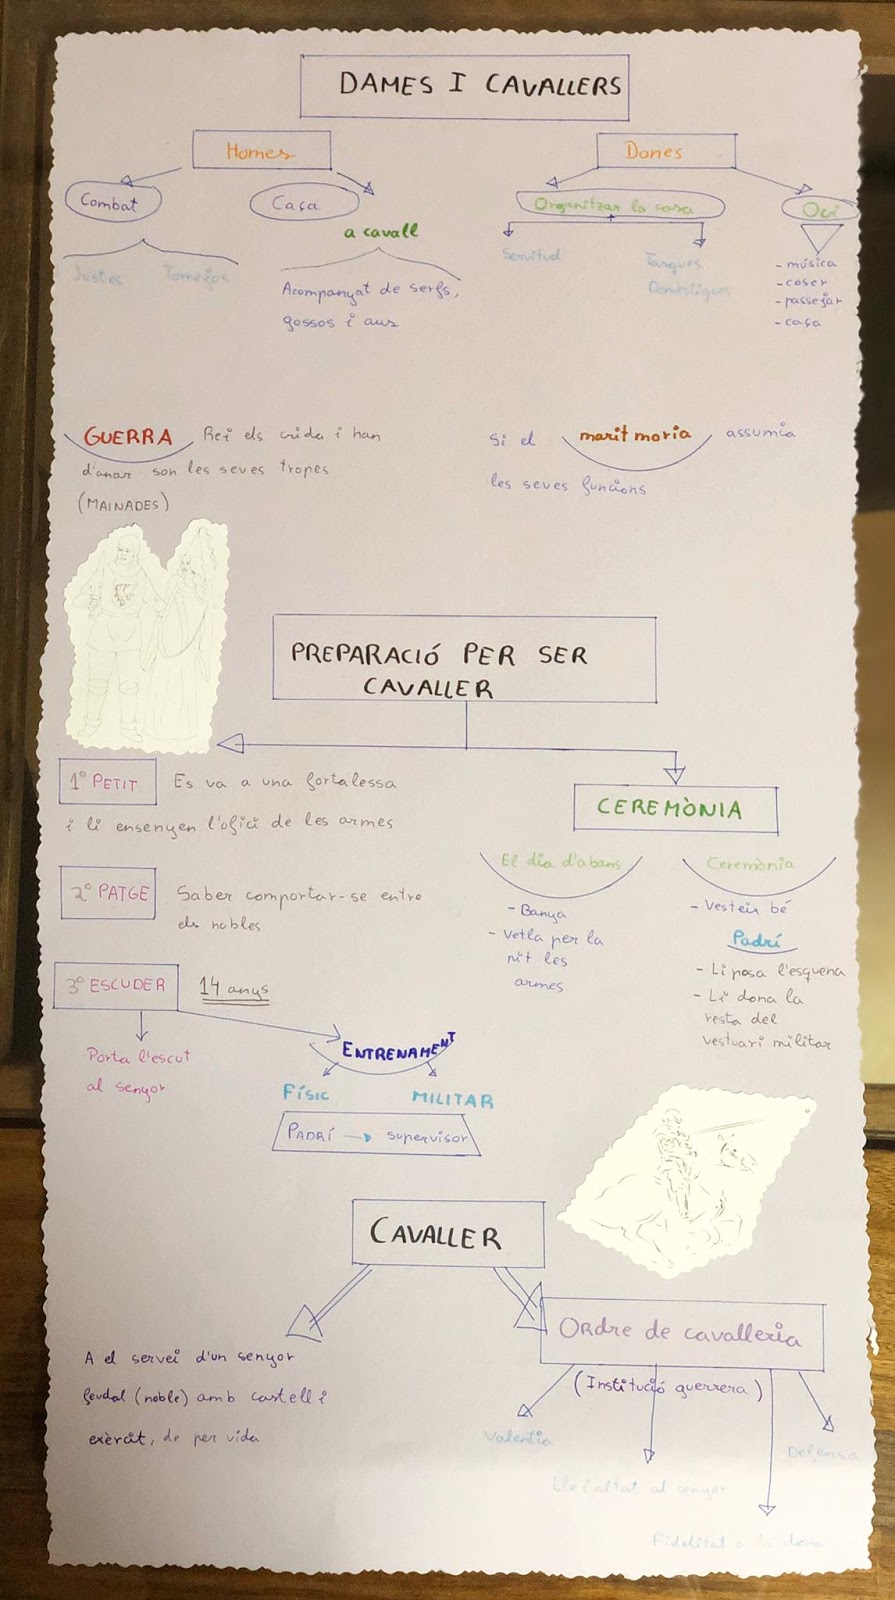 DAMES I CAVALLERS
Homes
Combat
Caça
a cavall
Justes
Tornejos
Acompanyat de serfs,
gossos i aus
Dones
Organitzar la casa
Oci
Servitud
Tasques
Domèstiques
- música
- coser
- passejar
- caça
GUERRA Rei els crida i han
d'anar son les seves tropes
(MAINADES)
Si el marit moria assumia
les seves funcions
PREPARACIÓ PER SER
CAVALLER
1º PETIT Es va a una fortalessa
i li ensenyen l'ofici de les armes
2º PATGE Saber comportar-se entre
els nobles
3º ESCUDER 14 anys
Porta l'escut
al senyor
ENTRENAMENT
FÍSIC
MILITAR
PADRÍ → supervisor
CEREMÒNIA
El dia d'abans
- Banya
- Vetla per la
nit les
armes
Ceremònia
- Vesteix bé
Padrí
- Li posa l'esquena
- Li dona la
resta del
vestuari militar
CAVALLER
A el servei d'un senyor
feudal (noble) amb castell i
exèrcit, de per vida
Ordre de cavalleria
(Institució guerrera)
Valentia
Lleialtat al senyor
Fidelitat a la dona
Defensa